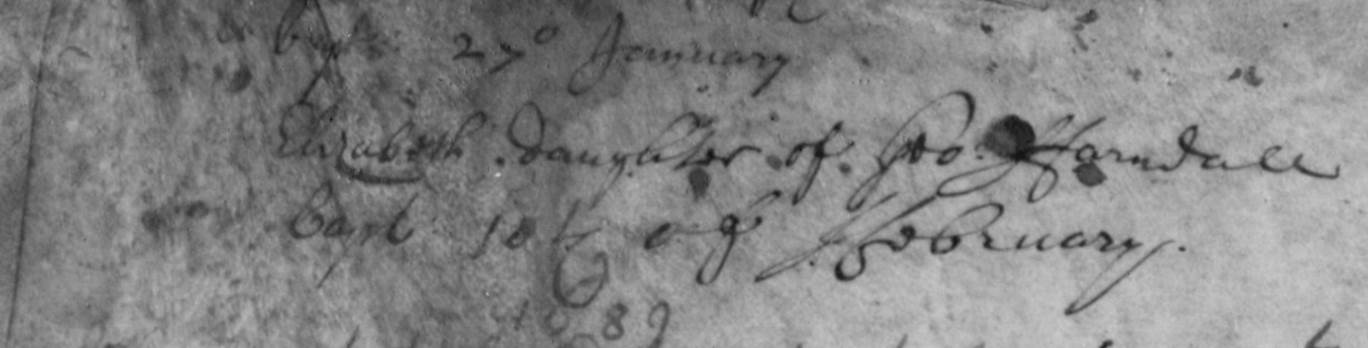 bapt 27º January
Elizabeth daughter of Geo. ffarndall
bapt 10th of ffebruary.
1689